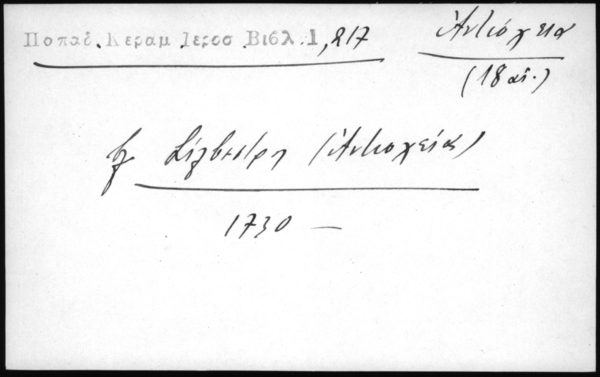 Παπαδ. Κεραμ Ιεροσ Βιβλ. 1, 217 Ἀντιόχεια
(18 αἰ.)
Σίλβεστρ (Ἀντιοχείας)
1730 —